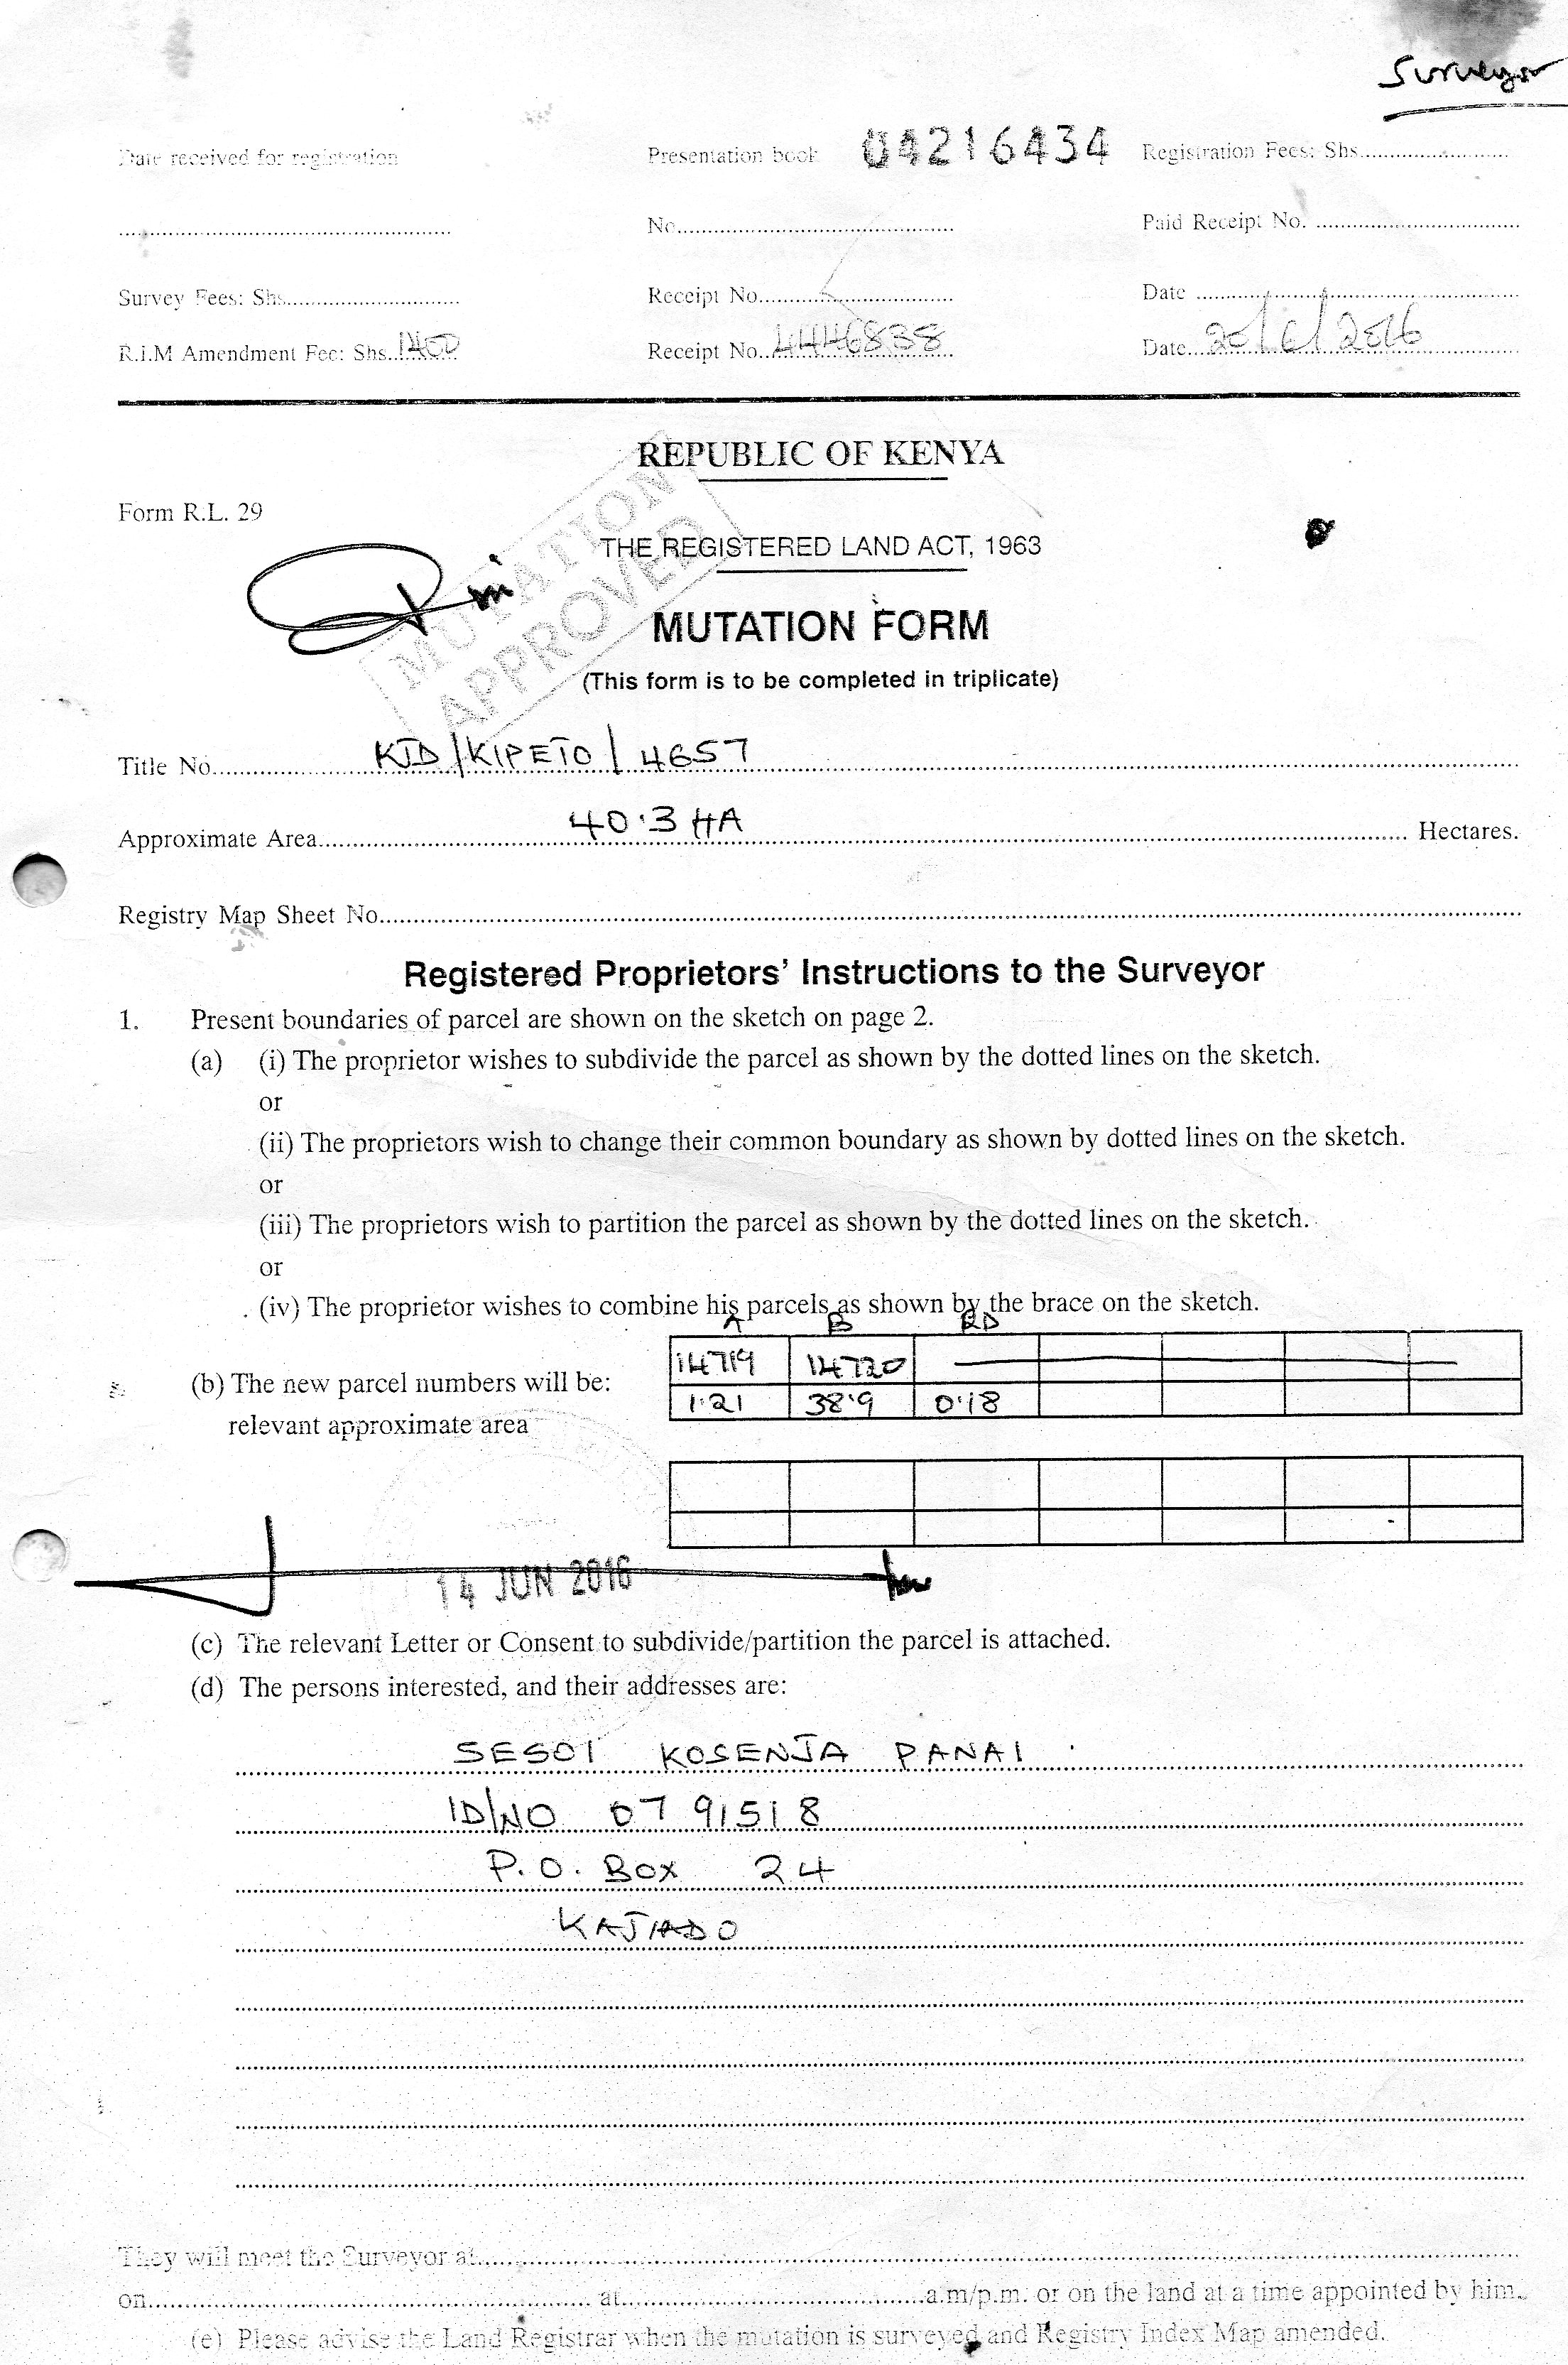 Surveyor
Date received for registration
Presentation book 04216434 Registration Fees: Shs..........
..........
No.......... Paid Receipt No. ..........
Survey Fees: Shs.......... Receipt No.......... Date ..........
R.I.M Amendment Fee: Shs..1400 Receipt No..4446838 Date...20/6/2016
REPUBLIC OF KENYA
Form R.L. 29
THE REGISTERED LAND ACT, 1963
MUTATION APPROVED
MUTATION FORM
(This form is to be completed in triplicate)
Title No.......... KJD/KIPETO/4657
Approximate Area.......... 40.3 HA .......... Hectares.
Registry Map Sheet No..........
Registered Proprietors' Instructions to the Surveyor
1. Present boundaries of parcel are shown on the sketch on page 2.
(a) (i) The proprietor wishes to subdivide the parcel as shown by the dotted lines on the sketch.
or
(ii) The proprietors wish to change their common boundary as shown by dotted lines on the sketch.
or
(iii) The proprietors wish to partition the parcel as shown by the dotted lines on the sketch.
or
(iv) The proprietor wishes to combine his parcels as shown by the brace on the sketch.
A B RD
(b) The new parcel numbers will be: 14719 14720
relevant approximate area 1.21 38.9 0.18
14 JUN 2016
(c) The relevant Letter or Consent to subdivide/partition the parcel is attached.
(d) The persons interested, and their addresses are:
SESOI KOSENJA PANAI
ID/NO 0791518
P.O. BOX 24
KAJIADO
They will meet the Surveyor at..........
on.......... at..........a.m/p.m. or on the land at a time appointed by him.
(e) Please advise the Land Registrar when the mutation is surveyed and Registry Index Map amended.